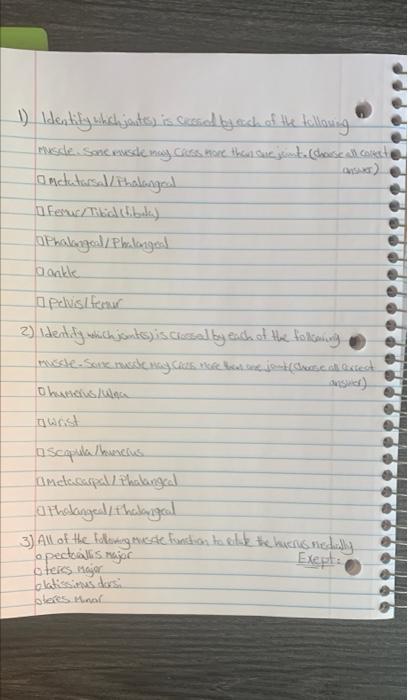 1) Identify which joint(s) is crossed by each of the following
muscle. Some muscle may cross more than one joint. (choose all correct
answer)
□ metatarsal/Phalangeal
□ Femur/Tibia(fibula)
□ Phalangeal/Phalangeal
□ ankle
□ pelvis/femur
2) Identify which joint(s) is crossed by each of the following
muscle. Some muscle may cross more than one joint (choose all correct
answer)
□ humerus/ulna
□ wrist
□ Scapula/humerus
□ Metacarpal/Phalangeal
□ Phalangeal/Phalangeal
3) All of the following muscle function to rotate the humerus medially
Exept:
o pectorallis major
o teres major
o latissimus dorsi
o teres Minor